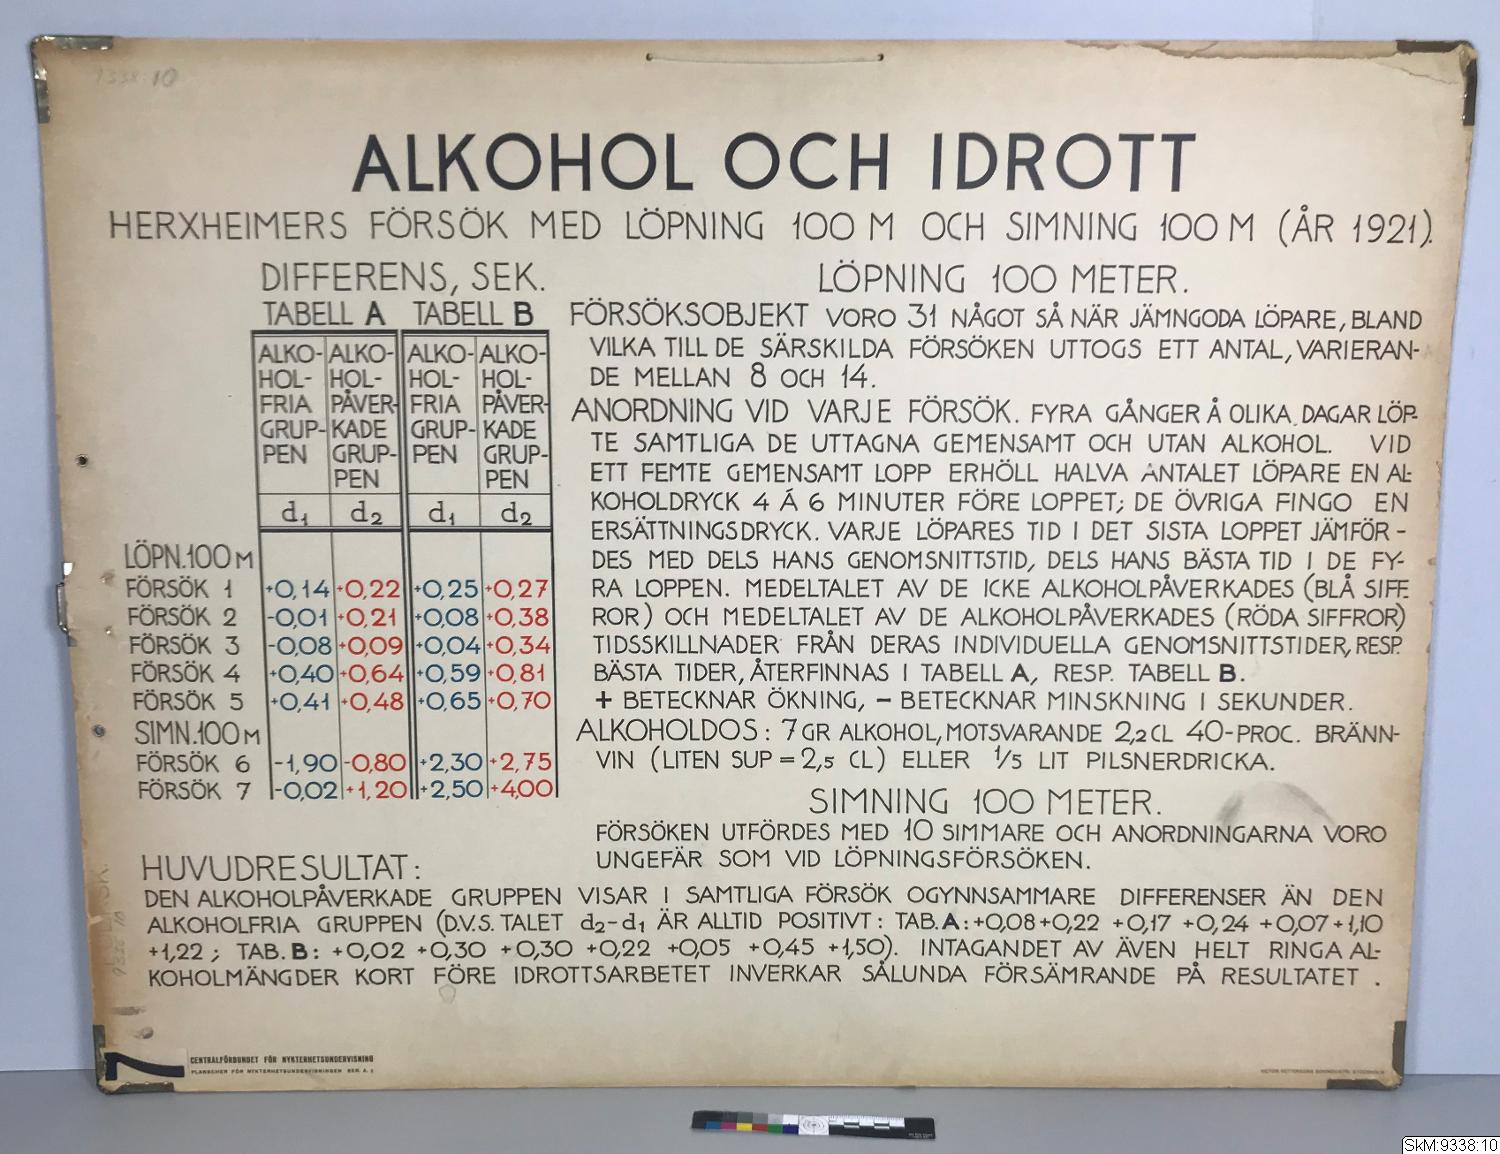 9338:10
ALKOHOL OCH IDROTT
HERXHEIMERS FÖRSÖK MED LÖPNING 100 M OCH SIMNING 100 M (ÅR 1921).
DIFFERENS, SEK.
TABELL A TABELL B
ALKO- ALKO- ALKO- ALKO-
HOL- HOL- HOL- HOL-
FRIA PÅVER- FRIA PÅVER-
GRUP- KADE GRUP- KADE
PEN GRUP- PEN GRUP-
PPEN PPEN
d1 d2 d1 d2
LÖPN.100 M
FÖRSÖK 1 +0,14 +0,22 +0,25 +0,27
FÖRSÖK 2 -0,01 +0,21 +0,08 +0,38
FÖRSÖK 3 -0,08 +0,09 +0,04 +0,34
FÖRSÖK 4 +0,40 +0,64 +0,59 +0,81
FÖRSÖK 5 +0,41 +0,48 +0,65 +0,70
SIMN.100 M
FÖRSÖK 6 -1,90 -0,80 +2,30 +2,75
FÖRSÖK 7 -0,02 +1,20 +2,50 +4,00
LÖPNING 100 METER.
FÖRSÖKSOBJEKT VORO 31 NÅGOT SÅ NÄR JÄMNGODA LÖPARE, BLAND
VILKA TILL DE SÄRSKILDA FÖRSÖKEN UTTOGS ETT ANTAL, VARIERAN-
DE MELLAN 8 OCH 14.
ANORDNING VID VARJE FÖRSÖK. FYRA GÅNGER Å OLIKA DAGAR LÖP-
TE SAMTLIGA DE UTTAGNA GEMENSAMT OCH UTAN ALKOHOL. VID
ETT FEMTE GEMENSAMT LOPP ERHÖLL HALVA ANTALET LÖPARE EN AL-
KOHOLDRYCK 4 Á 6 MINUTER FÖRE LOPPET; DE ÖVRIGA FINGO EN
ERSÄTTNINGSDRYCK. VARJE LÖPARES TID I DET SISTA LOPPET JÄMFÖR-
DES MED DELS HANS GENOMSNITTSTID, DELS HANS BÄSTA TID I DE FY-
RA LOPPEN. MEDELTALET AV DE ICKE ALKOHOLPÅVERKADES (BLÅ SIFF-
ROR) OCH MEDELTALET AV DE ALKOHOLPÅVERKADES (RÖDA SIFFROR)
TIDSSKILLNADER FRÅN DERAS INDIVIDUELLA GENOMSNITTSTIDER, RESP.
BÄSTA TIDER, ÅTERFINNAS I TABELL A, RESP. TABELL B.
+ BETECKNAR ÖKNING, - BETECKNAR MINSKNING I SEKUNDER.
ALKOHOLDOS: 7 GR ALKOHOL, MOTSVARANDE 2,2 CL 40-PROC. BRÄNN-
VIN (LITEN SUP = 2,5 CL) ELLER 1/5 LIT PILSNERDRICKA.
SIMNING 100 METER.
FÖRSÖKEN UTFÖRDES MED 10 SIMMARE OCH ANORDNINGARNA VORO
UNGEFÄR SOM VID LÖPNINGSFÖRSÖKEN.
HUVUDRESULTAT:
DEN ALKOHOLPÅVERKADE GRUPPEN VISAR I SAMTLIGA FÖRSÖK OGYNNSAMMARE DIFFERENSER ÄN DEN
ALKOHOLFRIA GRUPPEN (D.V.S. TALET d2-d1 ÄR ALLTID POSITIVT: TAB.A: +0,08 +0,22 +0,17 +0,24 +0,07 +1,10
+1,22; TAB. B: +0,02 +0,30 +0,30 +0,22 +0,05 +0,45 +1,50). INTAGANDET AV ÄVEN HELT RINGA AL-
KOHOLMÄNGDER KORT FÖRE IDROTTSARBETET INVERKAR SÅLUNDA FÖRSÄMRANDE PÅ RESULTATET.
7
CENTRALFÖRBUNDET FÖR NYKTERHETSUNDERVISNING
PLANSCHER FÖR NYKTERHETSUNDERVISNINGEN SER. A. 2
SkM:9338:10